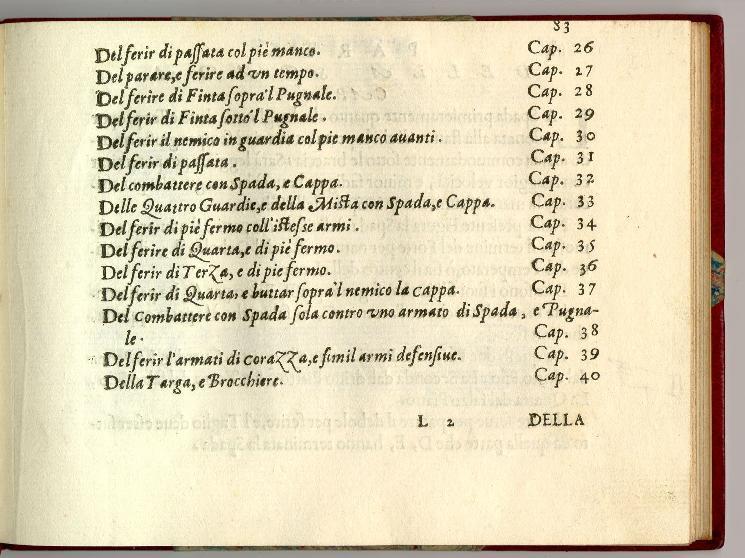 83
Del ferir di paſſata col piè manco. Cap. 26
Del parare, e ferire ad vn tempo. Cap. 27
Del ferire di Finta ſopra'l Pugnale. Cap. 28
Del ferir di Finta ſotto'l Pugnale. Cap. 29
Del ferir il nemico in guardia col piè manco auanti. Cap. 30
Del ferir di paſſata. Cap. 31
Del combattere con Spada, e Cappa. Cap. 32
Delle Quattro Guardie, e della Miſta con Spada, e Cappa. Cap. 33
Del ferir di piè fermo coll'iſteſse armi. Cap. 34
Del ferire di Quarta, e di piè fermo. Cap. 35
Del ferir di Terza, e di pie fermo. Cap. 36
Del ferir di Quarta, e buttar ſopra'l nemico la cappa. Cap. 37
Del Combattere con Spada ſola contro vno armato di Spada, e Pugna-
le. Cap. 38
Del ferir l'armati di corazza, e ſimil armi defenſiue. Cap. 39
Della Targa, e Brocchiere. Cap. 40
L 2 DELLA